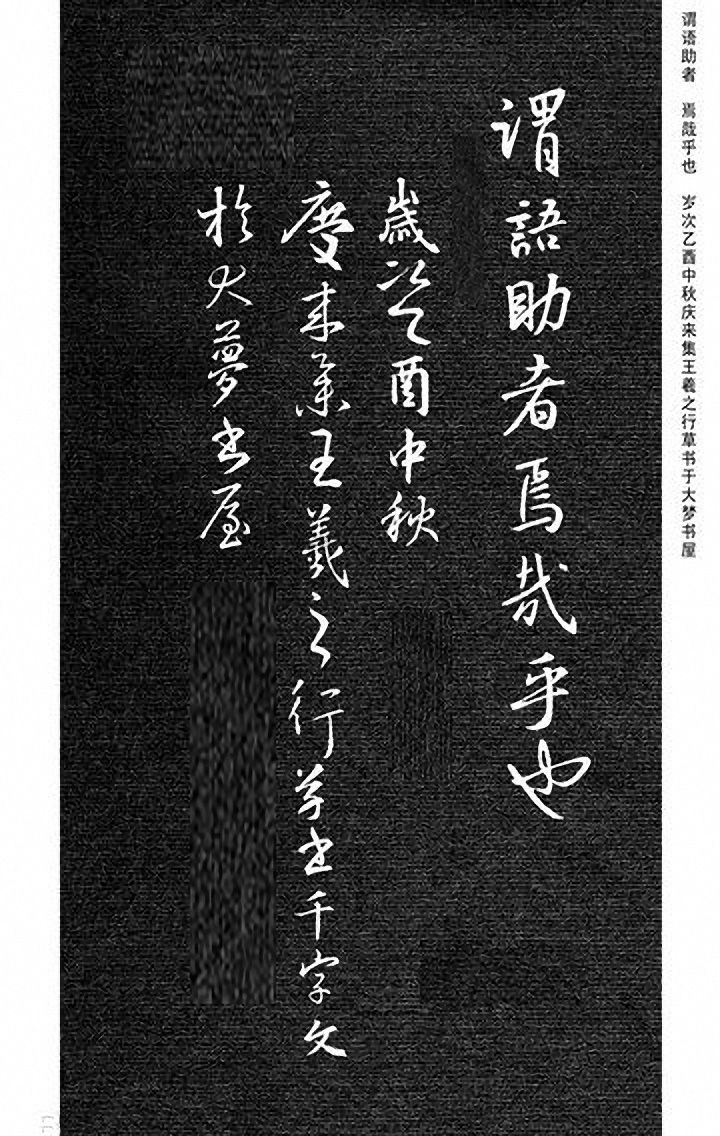 谓语助者 焉哉乎也 岁次乙酉中秋庆来集王羲之行草书于大梦书屋
謂語助者焉哉乎也
歲次乙酉中秋
慶来集王羲之行草书千字文
於大夢书屋